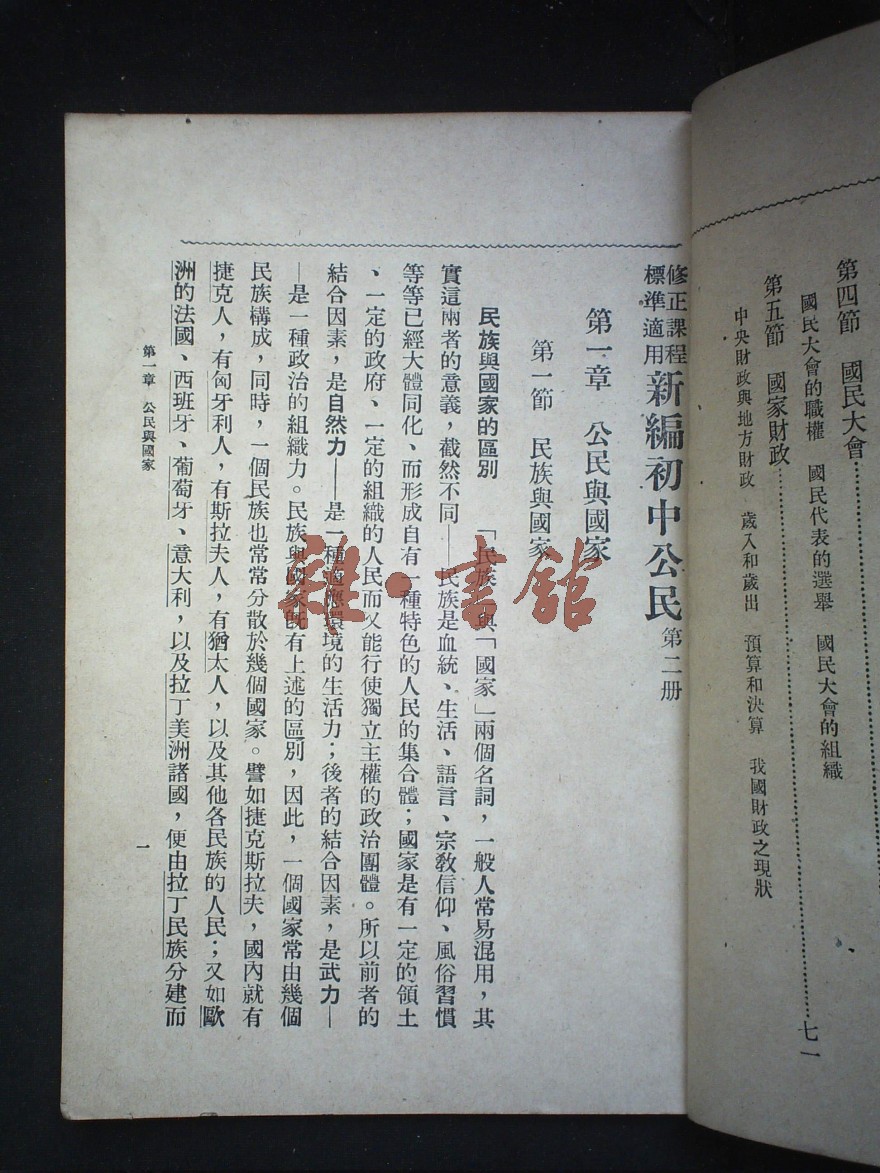 第四節　國民大會
國民大會的職權　國民代表的選舉　國民大會的組織
第五節　國家財政……七一
中央財政與地方財政　歲入和歲出　預算和決算　我國財政之現狀
修正課程
標準適用
新編初中公民第二册
第一章　公民與國家
第一節　民族與國家
民族與國家的區別　「民族」與「國家」兩個名詞，一般人常易混用，其
實這兩者的意義，截然不同——民族是血統、生活、語言、宗教信仰、風俗習慣
等等已經大體同化、而形成自有一種特色的人民的集合體；國家是有一定的領土
、一定的政府、一定的組織的人民而又能行使獨立主權的政治團體。所以前者的
結合因素，是自然力——是一種適應環境的生活力；後者的結合因素，是武力—
—是一種政治的組織力。民族與國家既有上述的區別，因此，一個國家常由幾個
民族構成，同時，一個民族也常常分散於幾個國家。譬如捷克斯拉夫，國內就有
捷克人，有匈牙利人，有斯拉夫人，有猶太人，以及其他各民族的人民；又如歐
洲的法國、西班牙、葡萄牙、意大利，以及拉丁美洲諸國，便由拉丁民族分建而
第一章　公民與國家
一
雜·書館